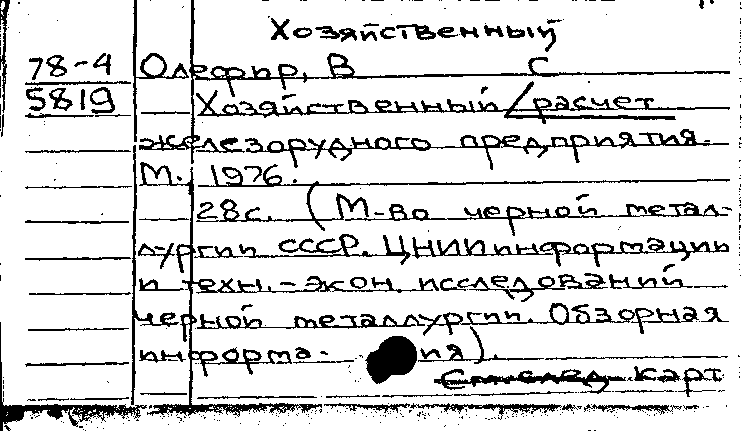 Хозяйственный
78-4 Олефир, В С
5819 Хозяйственный / расчет
железорудного предприятия.
М., 1976.
28с. (М-во черной метал-
лургии СССР. ЦНИИинформации
и техн.-экон. исследований
черной металлургии. Обзорная
информа- ия).
См. след карт